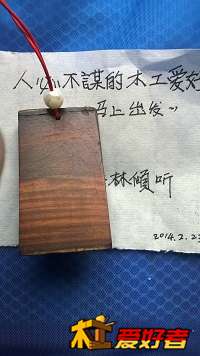 人心不谋的木工爱好
马上出发~
林倾听
2014.2.23
木工爱好者